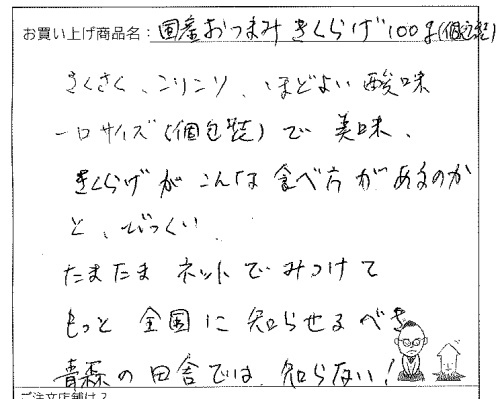 お買い上げ商品名：国産おつまみきくらげ100g(個包装)
さくさく、コリコリ、ほどよい酸味
一口サイズ(個包装)で美味、
きくらげがこんな食べ方があるのか
と、びっくり
たまたまネットでみつけて
もっと全国に知らせるべき
青森の田舎では、知らない！
ご注文店舗は？